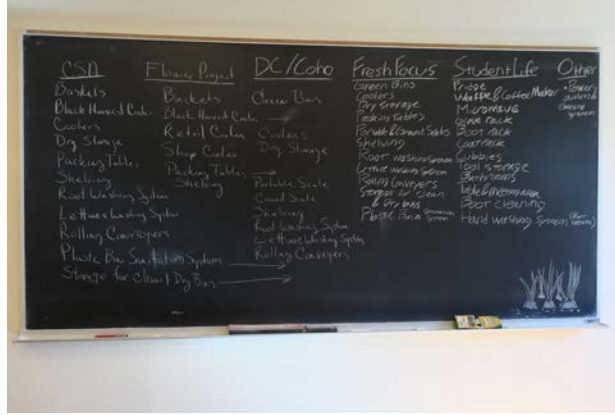 CSA
Baskets
Black Harvest Crates
Coolers
Dry Storage
Packing Tables
Shelving
Root Washing System
Lettuce Washing System
Rolling Conveyers
Plastic Bin Sanitation System
Storage for Clean & Dry Bins
Flower Project
Buckets
Black Harvest Crates
Retail Cooler
Shop Cooler
Packing Tables
Shelving
DC/Coho
Green Bins
Coolers
Dry Storage
Portable Scale
Count Scale
Shelving
Root Washing System
Lettuce Washing System
Rolling Conveyers
Fresh Focus
Green Bins
Coolers
Dry Storage
Packing Tables
Portable & Count Scales
Shelving
Root Washing System
Lettuce Washing System
Rolling Conveyors
Storage for clean
& Dry bins
Plastic Bin Sanitation System
Student Life
Fridge
Waffle & Coffee Maker
Microwave
Glove rack
Boot rack
Coat rack
Cubbies
Tool storage
Bathrooms
Boot cleaning
Hand washing System
Other
Power
outlets &
charging
system